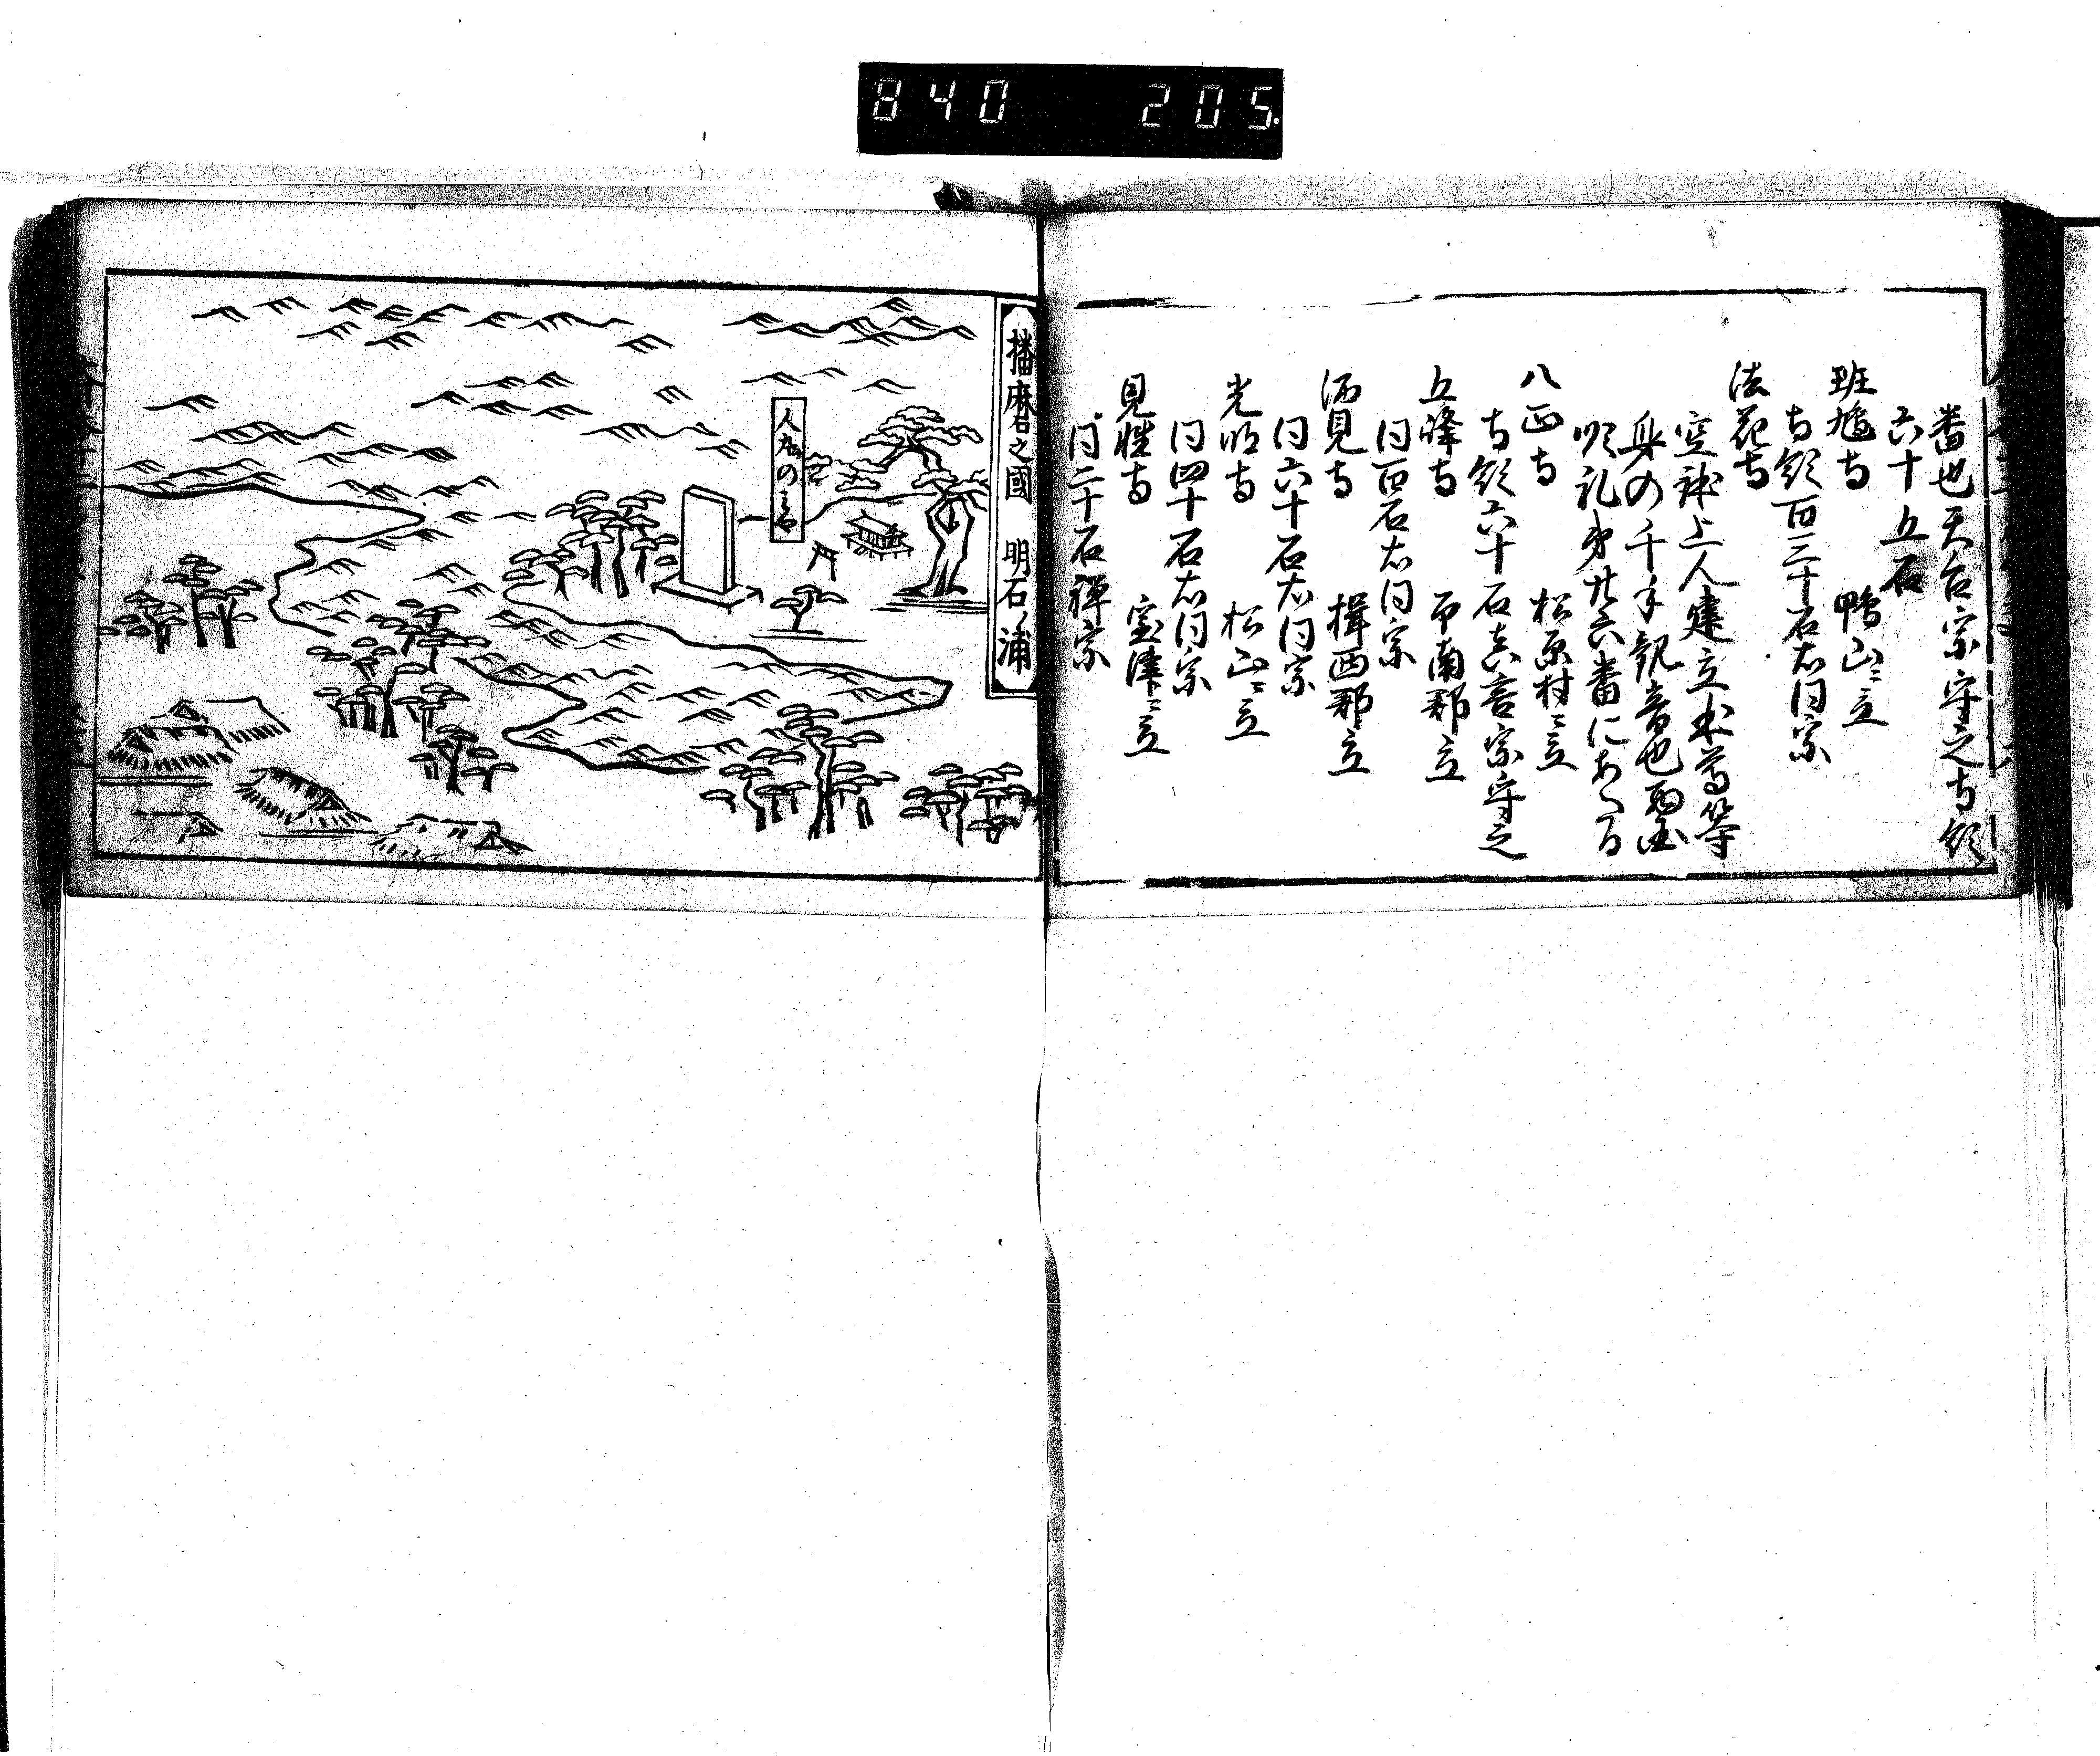 840 205.
番也天台宗守之寺領
六十五石
班鳩寺 鴨山ニ立
寺領百三十石右同宗
法花寺
空鉢上人建立本尊等
身の千手観音也西国
順礼第廿六番にあたる
八正寺 松原村ニ立
寺領六十石真言宗守之
五峰寺 印南郡立
同百石右同宗
酒見寺 揖西郡立
同六十石右同宗
光明寺 松山ニ立
同四十石右同宗
見性寺 室津ニ立
同二十石禅宗
播磨之國 明石ノ浦
人丸の